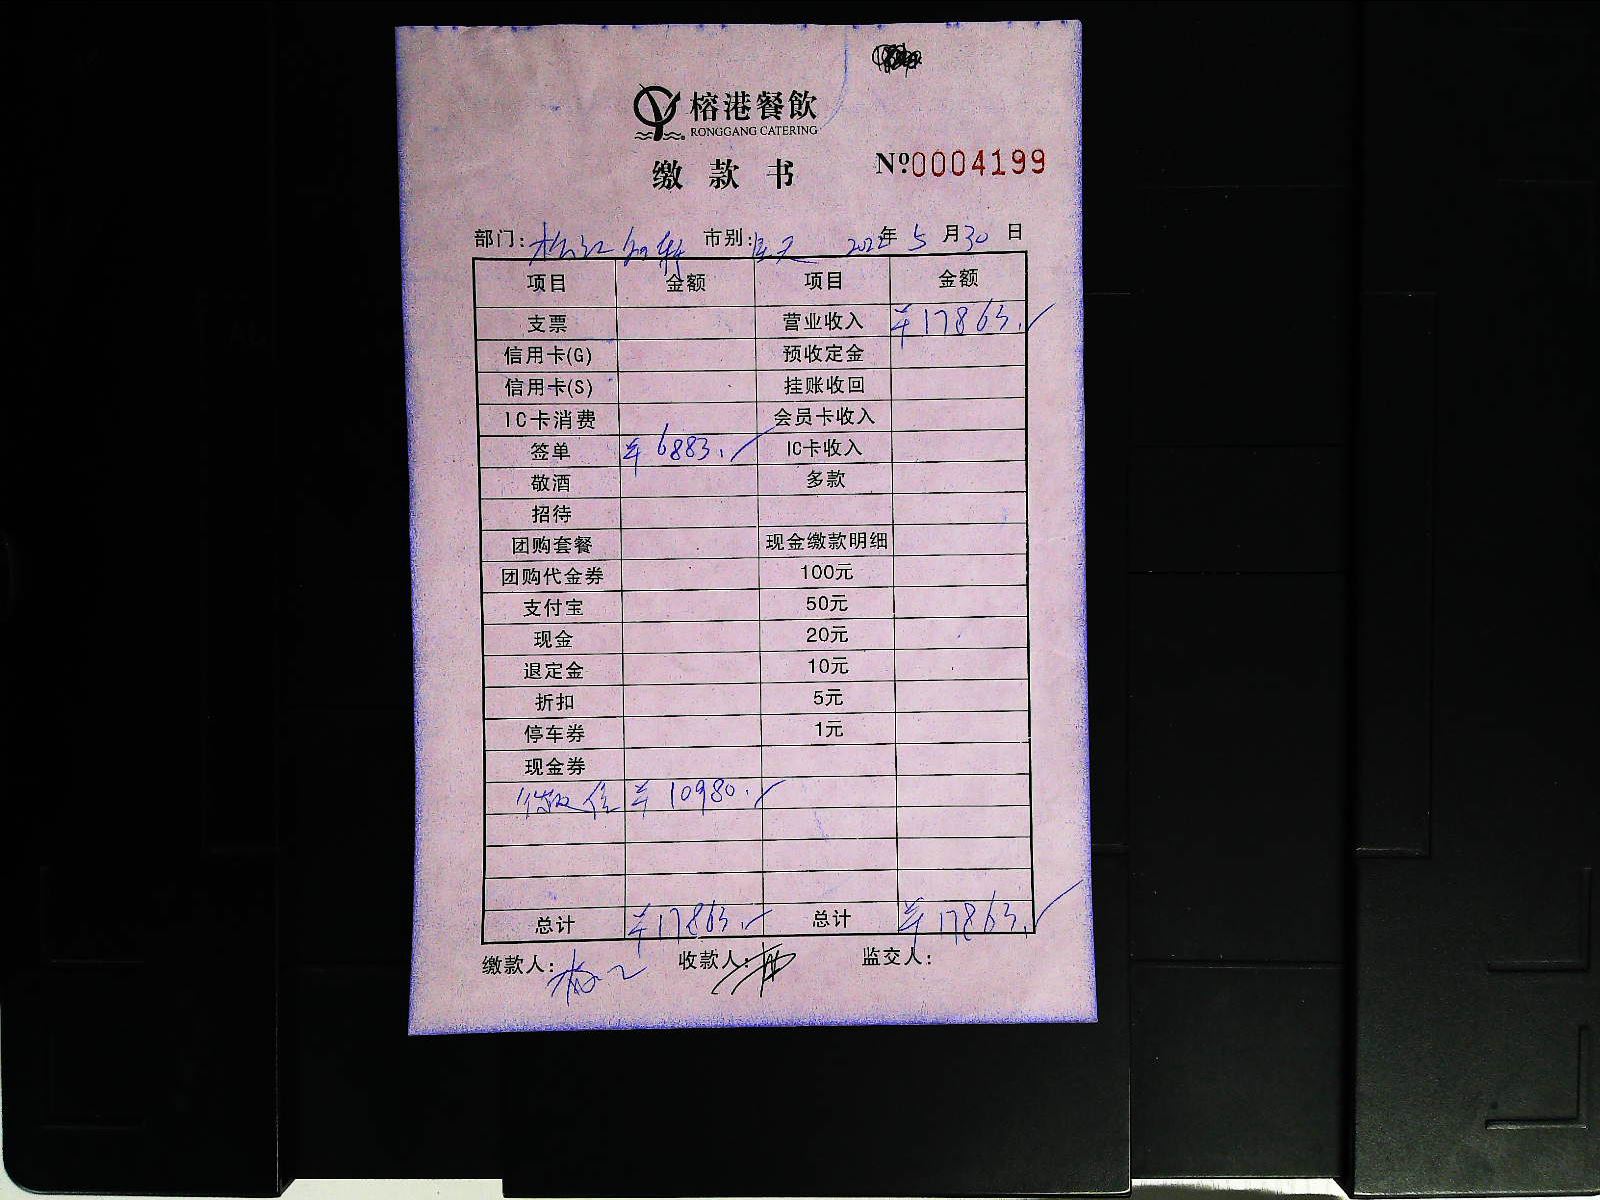 榕港餐飲
RONGGANG CATERING
缴款书
№0004199
部门: 松江 市别: 全天 2022年5月30日
项目 金额 项目 金额
支票 营业收入 ¥17863.
信用卡(G) 预收定金
信用卡(S) 挂账收回
IC卡消费 会员卡收入
签单 ¥6883. IC卡收入
敬酒 多款
招待
团购套餐 现金缴款明细
团购代金券 100元
支付宝 50元
现金 20元
退定金 10元
折扣 5元
停车券 1元
现金券
¥10980.
总计 ¥17863. 总计 ¥17863.
缴款人: 收款人: 监交人: